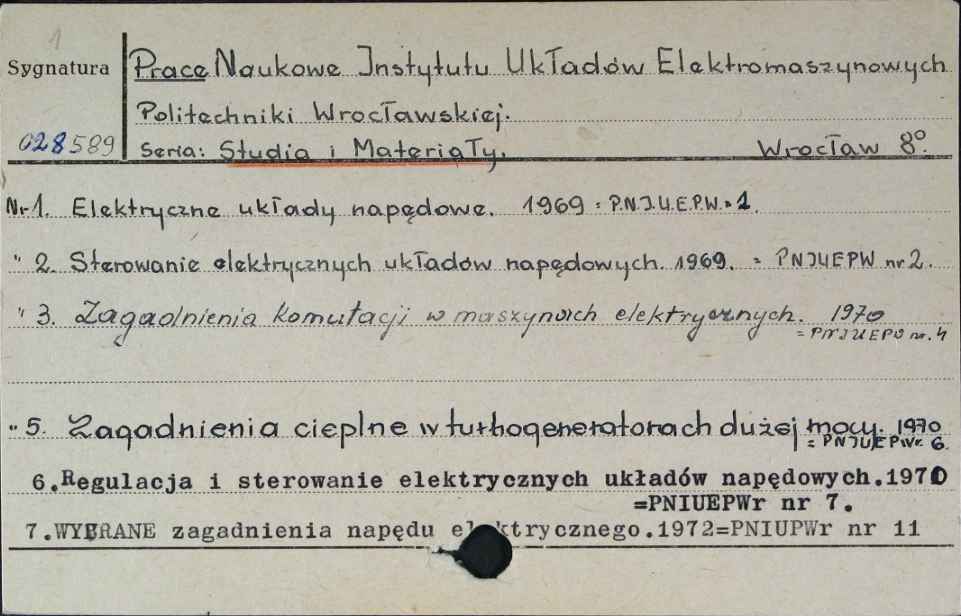 1
Sygnatura
Prace Naukowe Instytutu Układów Elektromaszynowych
Politechniki Wrocławskiej.
028589
Seria: Studia i Materiały. Wrocław 8°.
Nr 1. Elektryczne układy napędowe. 1969 = P.N.I.U.E.P.W. 1.
" 2. Sterowanie elektrycznych układów napędowych. 1969. = PNIUEPW nr 2.
" 3. Zagadnienia komutacji w maszynach elektrycznych. 1970
= PNIUEPW nr. 4
" 5. Zagadnienia cieplne w turbogeneratorach dużej mocy. 1970
= PNIUEPWr. 6.
6.Regulacja i sterowanie elektrycznych układów napędowych.1970
=PNIUEPWr nr 7.
7.WYBRANE zagadnienia napędu elektrycznego.1972=PNIUPWr nr 11